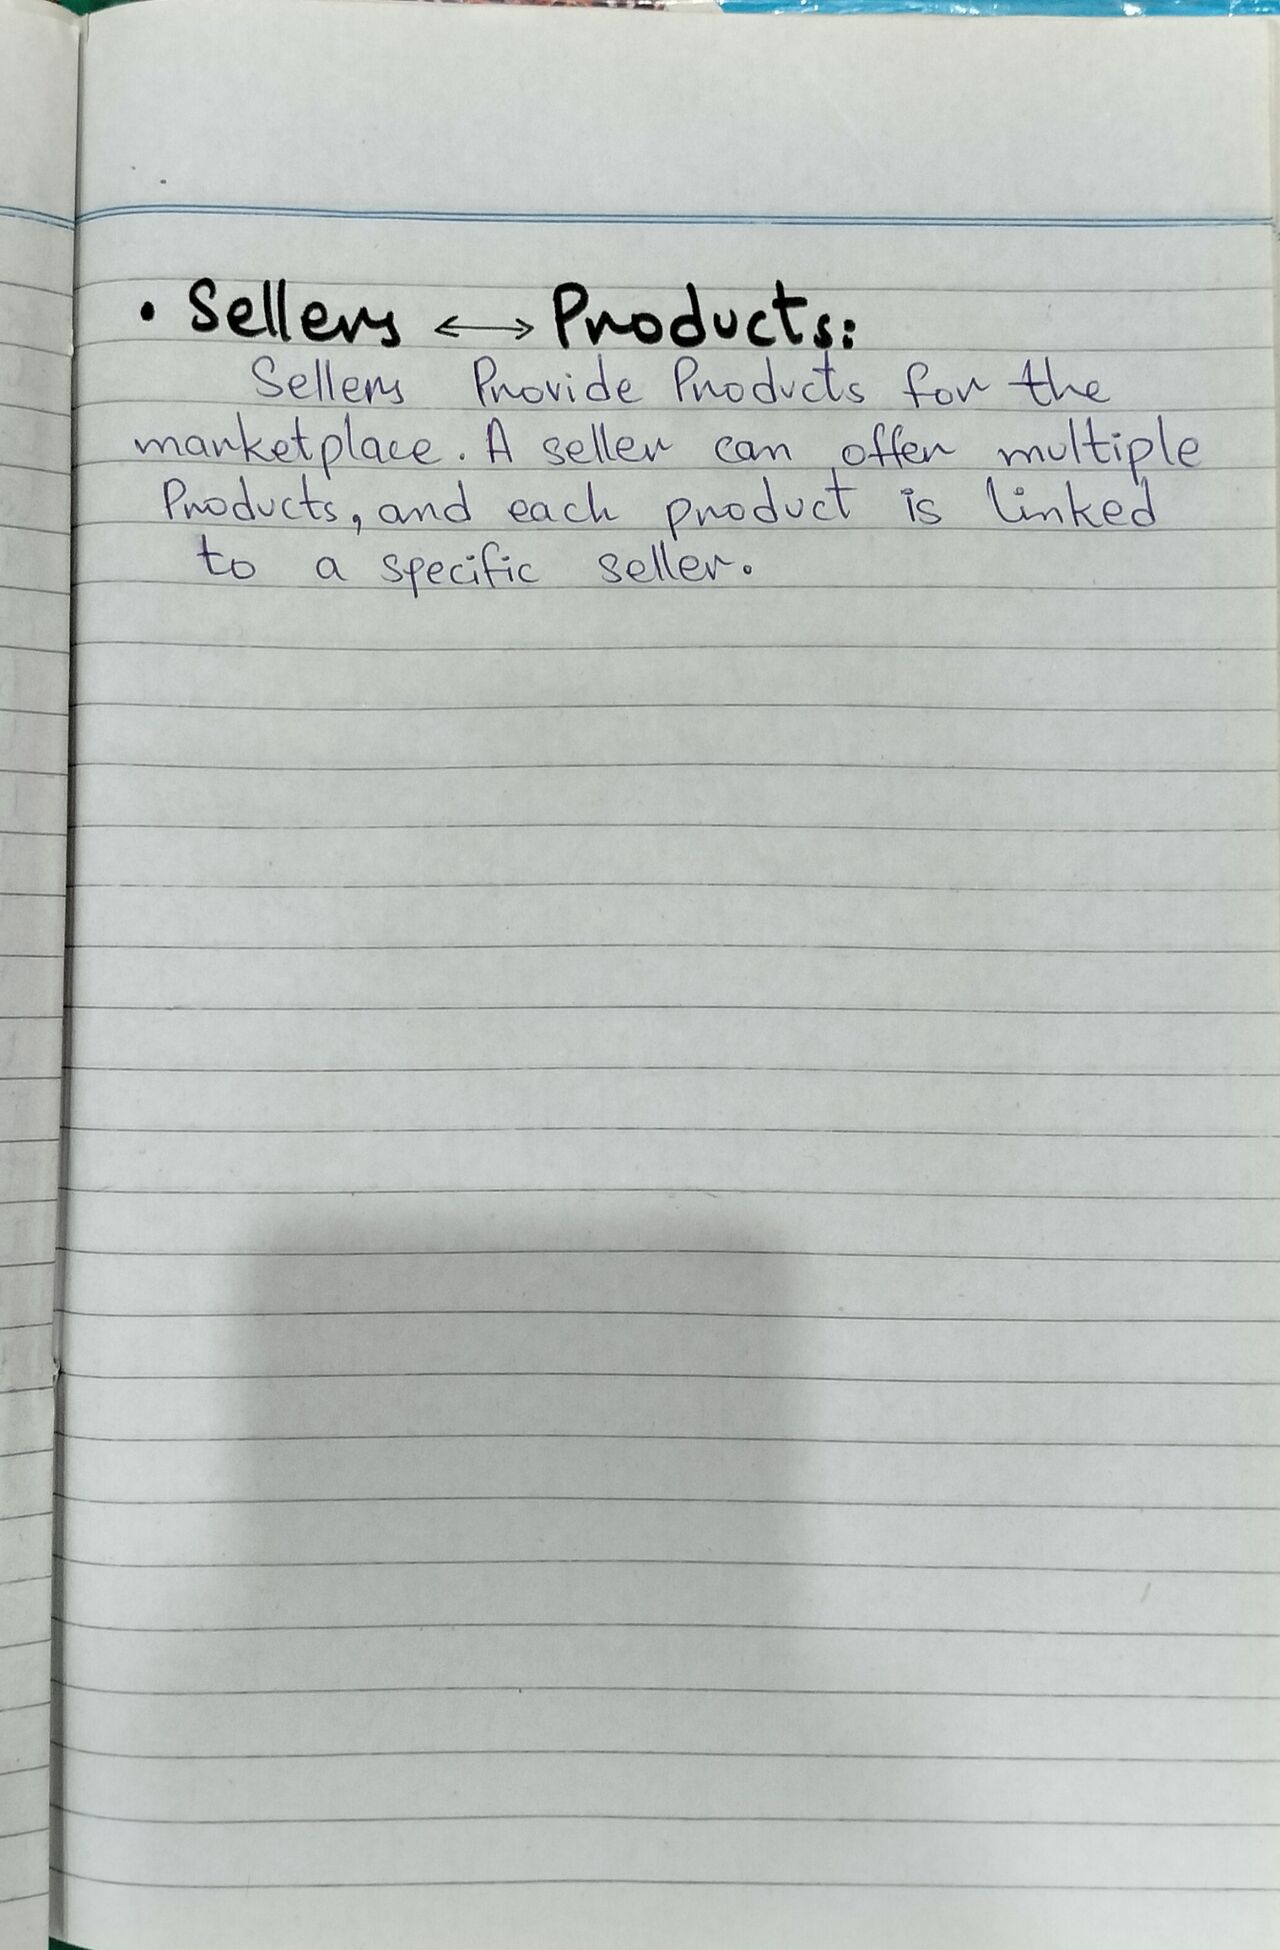 • Sellers ⟷ Products:
Sellers Provide Products for the
marketplace. A seller can offer multiple
Products, and each product is linked
to a specific seller.